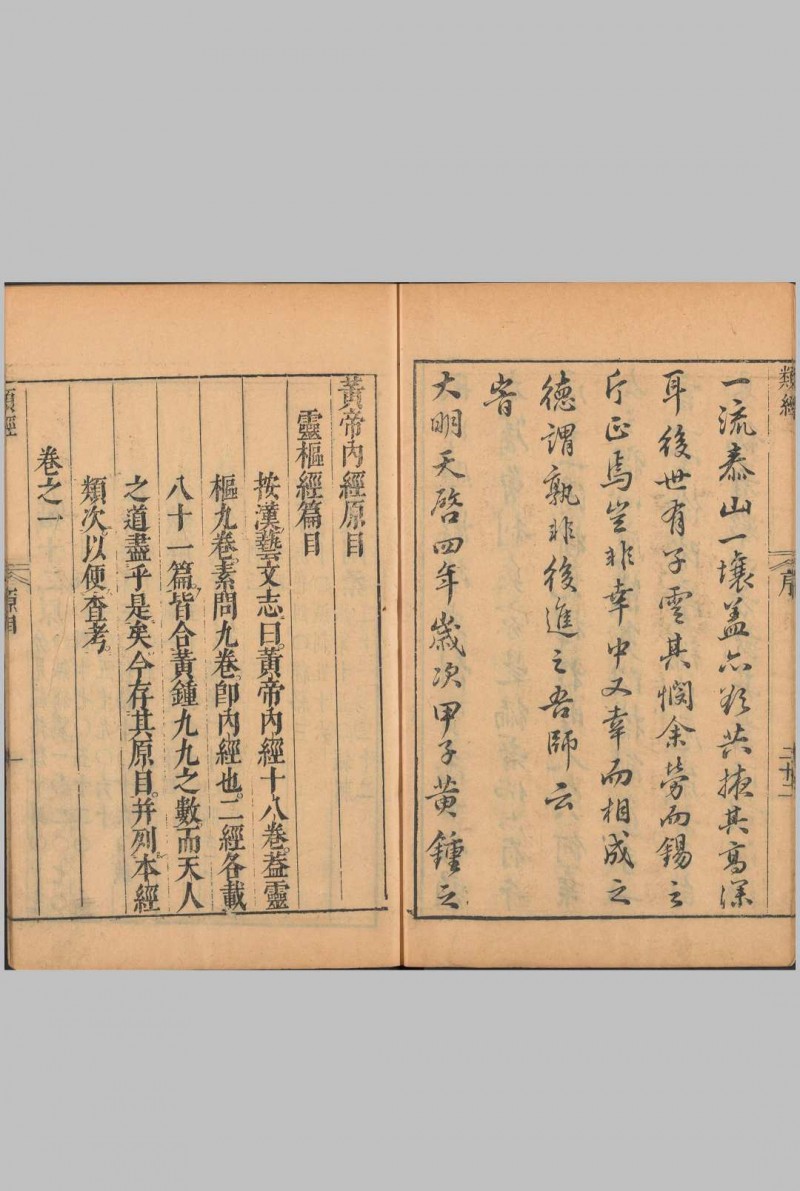 類經 序 二十二
一流泰山一壤盖亦欲共掖其高深
耳後世有子雲其憫余勞而錫之
斤正焉豈非幸中又幸而相成之
德謂孰非後進之吾師云
旹
大明天啓四年歲次甲子黄鍾之
黃帝內經原目
靈樞經篇目
按漢藝文志曰。黃帝內經十八卷。葢靈
樞九卷。素問九卷。卽內經也。二經各載
八十一篇。皆合黃鐘九九之數。而天人
之道盡乎是矣。今存其原目。并列本經
類次。以便查考。
卷之一
類經 原目 一